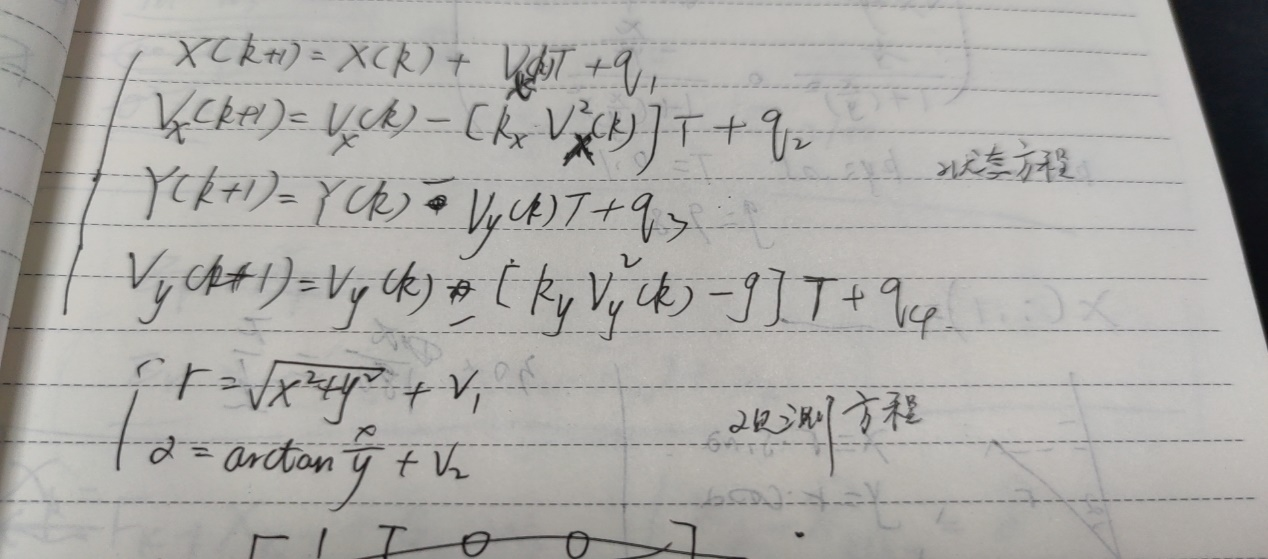 X(k+1) = X(k) + Vx(k)T + q₁
Vx(k+1) = Vx(k) − [kx Vx²(k)]T + q₂
Y(k+1) = Y(k) − Vy(k)T + q₃
状态方程
Vy(k+1) = Vy(k) − [ky Vy²(k) − g]T + q₄
r = √(x²+y²) + V₁
观测方程
α = arctan x/y + V₂
[1 T 0 0]